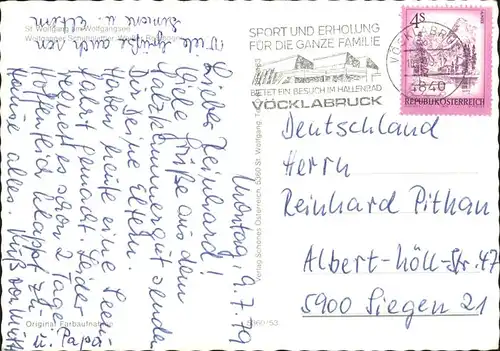 St Wolfgang am Wolfgangsee
SPORT UND ERHOLUNG
FÜR DIE GANZE FAMILIE
BIETET EIN BESUCH IM HALLENBAD
VÖCKLABRUCK
VÖCKLABRUCK
4840
4 S
REPUBLIK ÖSTERREICH
Montag, 9.7.79
Lieber Reinhard!
Viele Grüße aus dem
Salzkammergut senden
Dir Deine Eltern.
Haben heute eine Seen-
fahrt gemacht. Leider
regnet es schon 2 Tage.
Hoffentlich klappt zu-
Hause alles.
u. Papa
Viele Grüße auch von
Simone u. Eltern
Deutschland
Herrn
Reinhard Pithan
Albert-Höll-Str. 47
5900 Siegen 21
Verlag Schönes Österreich, 5360 St. Wolfgang, Te
Original Farbaufnahme